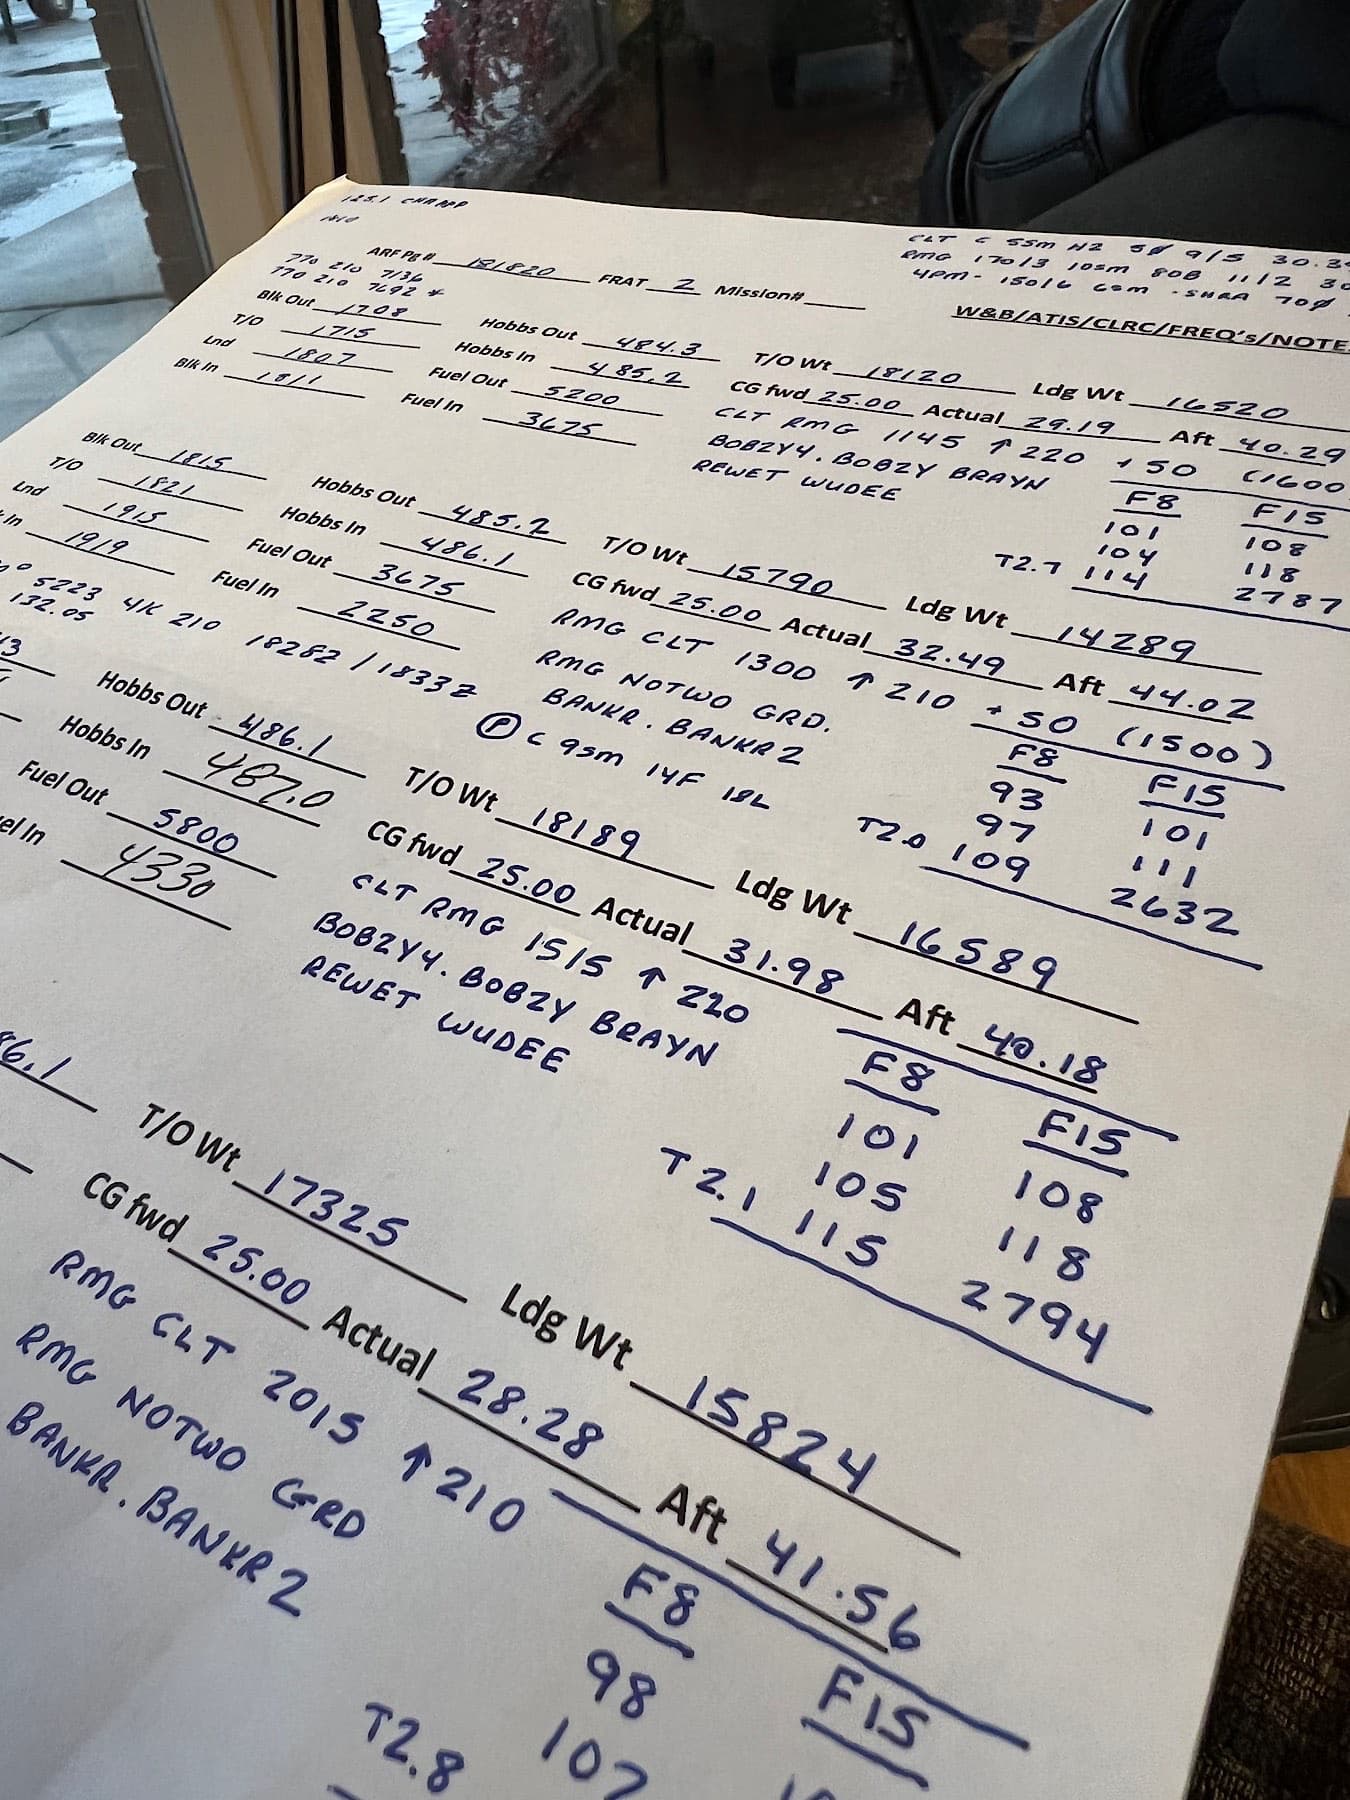 125.1 CHR APP
CLT C SSM H2 5Ø 9/5 30.3
RMG 17013 10sm 808 11/2 30
4PM - 15016 60m - SHRA 70Ø
ARF Pg # 181/820 FRAT 2 Mission#
W&B/ATIS/CLRC/FREQ's/NOTE
770 210 7136
770 210 7692 *
Blk Out 1708 Hobbs Out 484.3 T/O Wt 18120 Ldg Wt 16520
T/O 1715 Hobbs In 485.2 CG fwd 25.00 Actual 29.19 Aft 40.29
Lnd 1807 Fuel Out 5200 CLT RMG 1145 ↑ 220 + 50 (1600
Blk In 1811 Fuel In 3675 BOBZY4. BOBZY BRAYN F8 F15
REWET WUDEE 101 108
104 118
T2.7 114 2787
Blk Out 1815 Hobbs Out 485.2 T/O Wt 15790 Ldg Wt 14289
T/O 1821 Hobbs In 486.1 CG fwd 25.00 Actual 32.49 Aft 44.02
Lnd 1915 Fuel Out 3675 RMG CLT 1300 ↑ 210 + 50 (1500)
In 1919 Fuel In 2250 RMG NOTWO GRD. F8 F15
5223 4K 210 18282 / 18332 BANKR. BANKR2 93 101
132.05 Ⓟ C 9sm 14F 18L 97 111
T2.0 109 2632
Hobbs Out 486.1 T/O Wt 18189 Ldg Wt 16589
Hobbs In 487.0 CG fwd 25.00 Actual 31.98 Aft 40.18
Fuel Out 5800 CLT RMG 1515 ↑ 220 F8 F15
el In 4330 BOBZY4. BOBZY BRAYN 101 108
REWET WUDEE 105 118
T2.1 115 2794
86.1 T/O Wt 17325 Ldg Wt 15824
CG fwd 25.00 Actual 28.28 Aft 41.56
RMG CLT 2015 ↑ 210 F8 F15
RMG NOTWO GRD 98
BANKR. BANKR2 107
T2.8